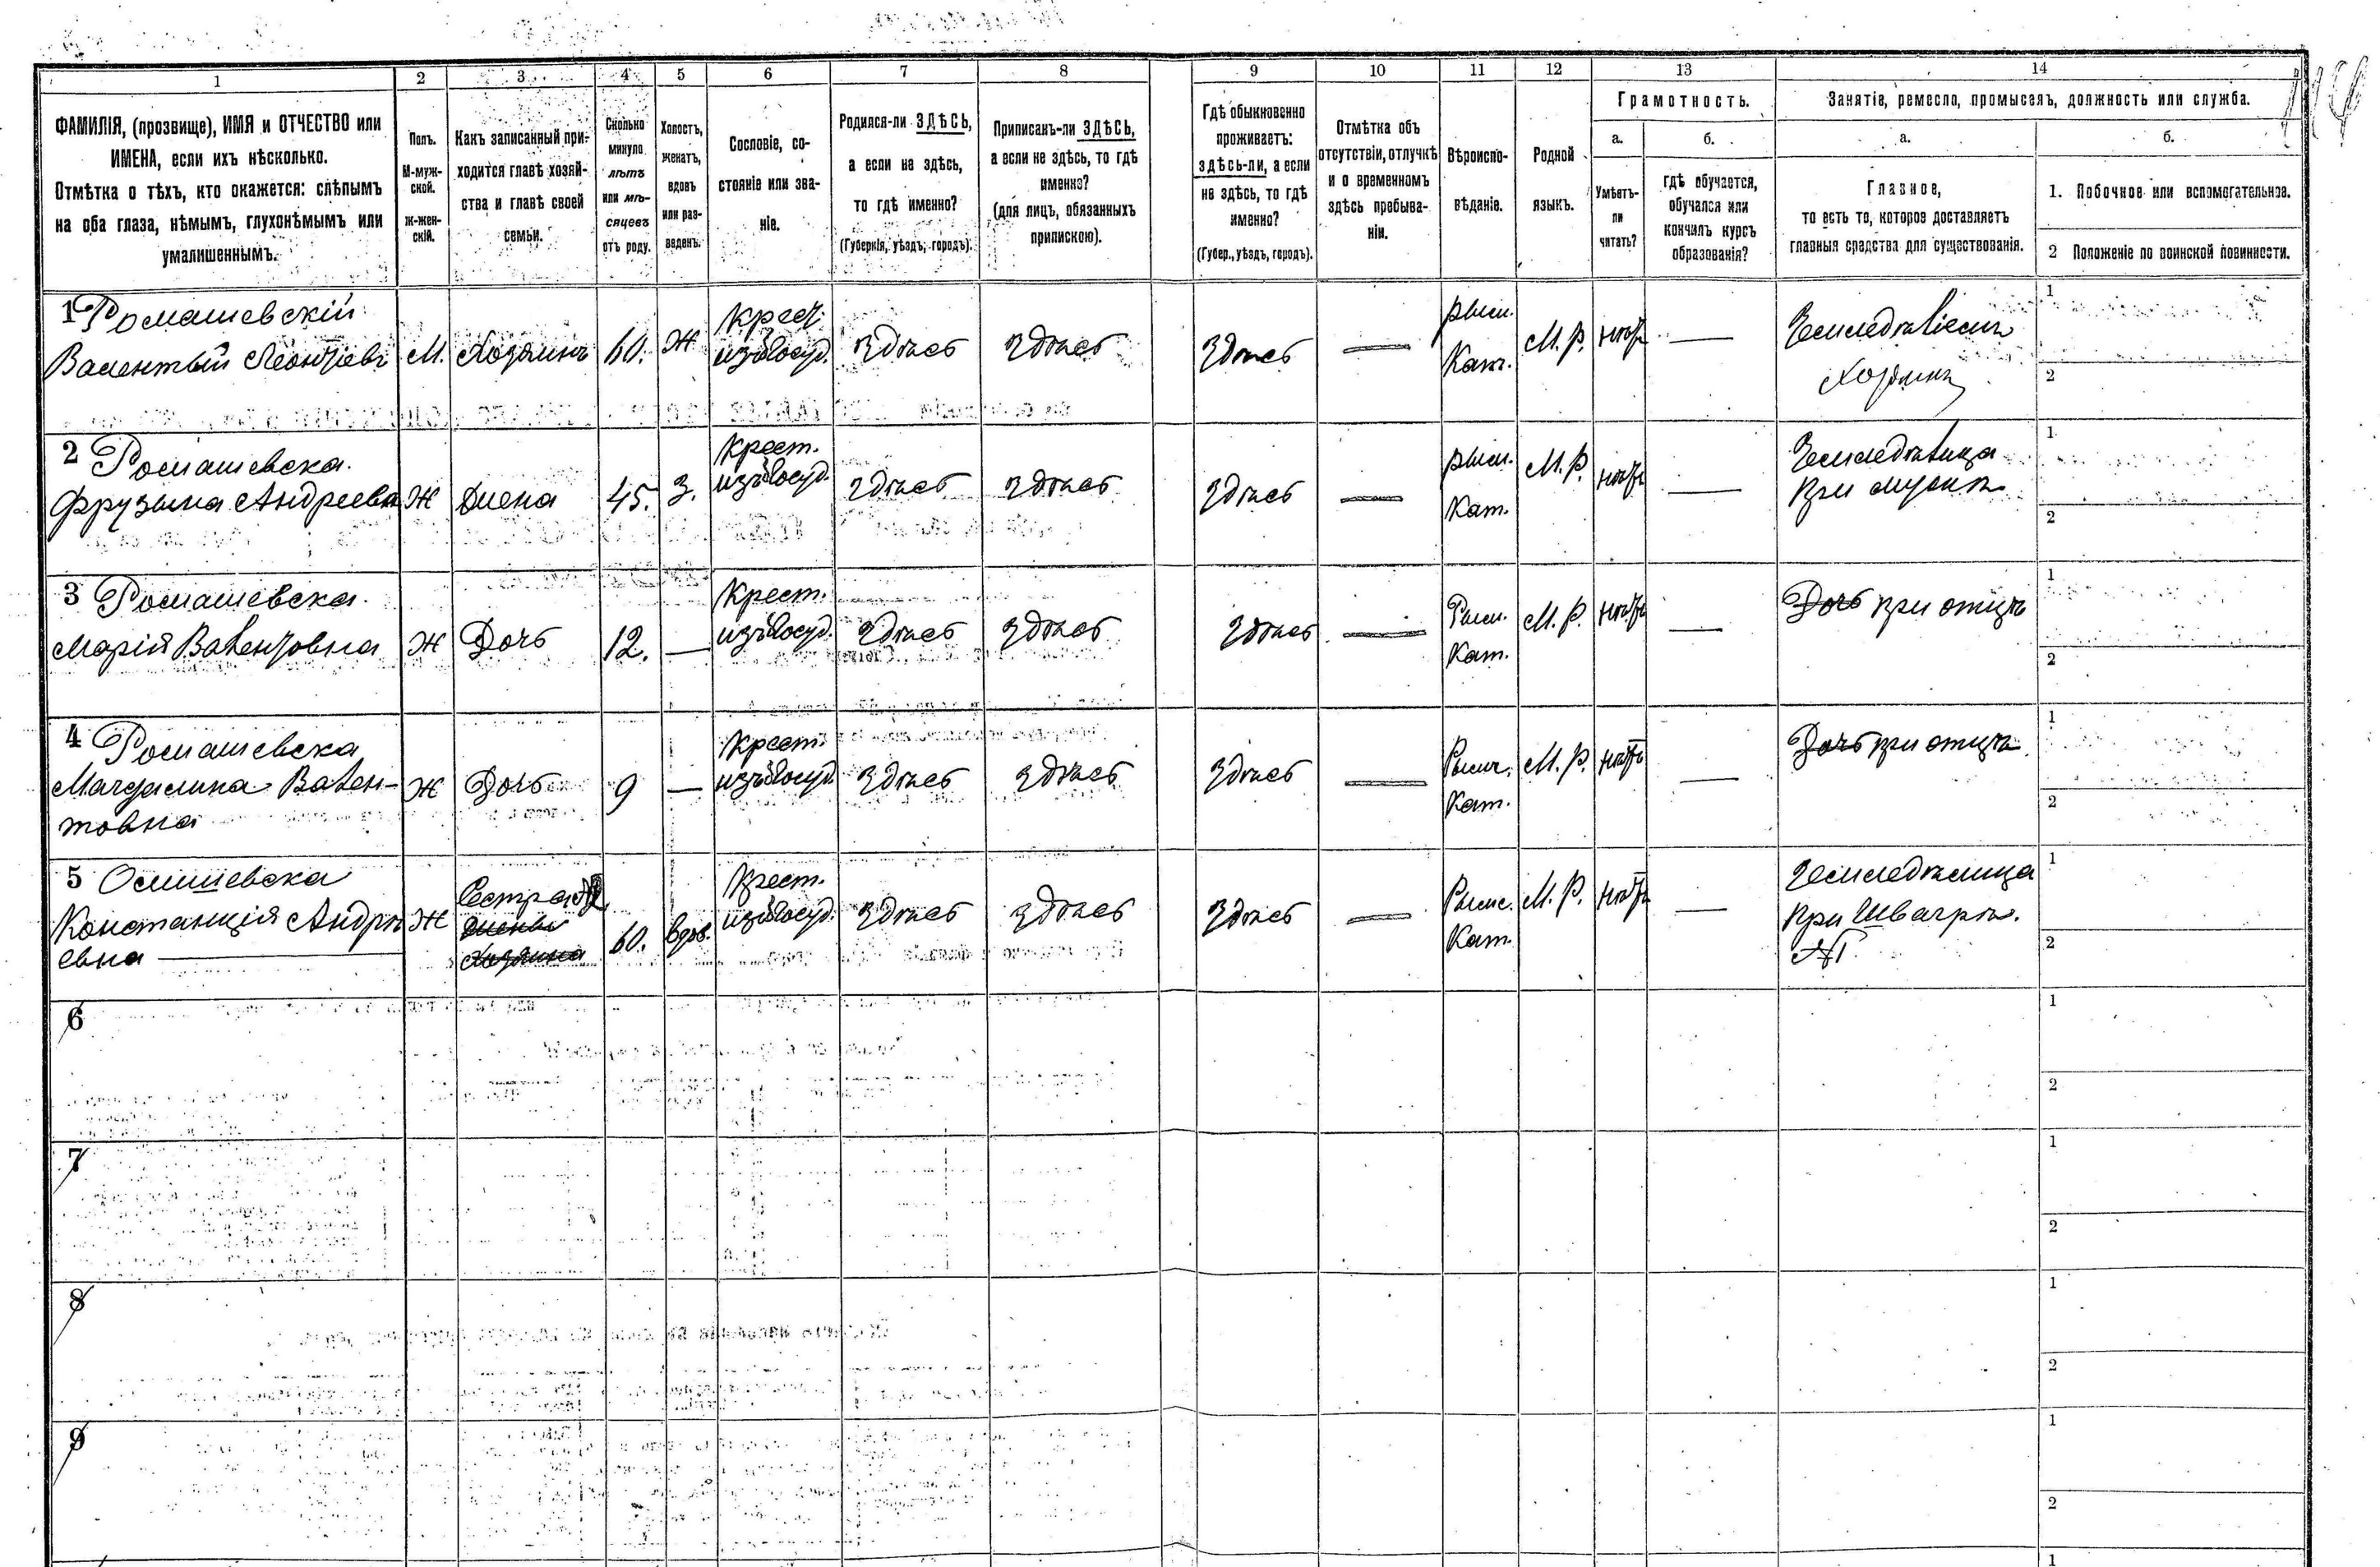 114
1 2 3 4 5 6 7 8 9 10 11 12 13 14
ФАМИЛІЯ, (прозвище), ИМЯ и ОТЧЕСТВО или
ИМЕНА, если ихъ нѣсколько.
Отмѣтка о тѣхъ, кто окажется: слѣпымъ
на оба глаза, нѣмымъ, глухонѣмымъ или
умалишеннымъ.
Полъ.
М-муж-
ской.
Ж-жен-
скій.
Какъ записанный при-
ходится главѣ хозяй-
ства и главѣ своей
семьи.
Сколько
минуло
лѣтъ
или мѣ-
сяцевъ
отъ роду.
Холостъ,
женатъ,
вдовъ
или раз-
веденъ.
Сословіе, со-
стояніе или зва-
ніе.
Родился-ли ЗДѢСЬ,
а если не здѣсь,
то гдѣ именно?
(Губернія, уѣздъ, городъ).
Приписанъ-ли ЗДѢСЬ,
а если не здѣсь, то гдѣ
именно?
(для лицъ, обязанныхъ
припискою).
Гдѣ обыкновенно
проживаетъ:
здѣсь-ли, а если
не здѣсь, то гдѣ
именно?
(Губер., уѣздъ, городъ).
Отмѣтка объ
отсутствіи, отлучкѣ
и о временномъ
здѣсь пребыва-
ніи.
Вѣроиспо-
вѣданіе.
Родной
языкъ.
Грамотность.
а.
Умѣетъ-
ли
читать?
б.
гдѣ обучается,
обучался или
кончилъ курсъ
образованія?
Занятіе, ремесло, промыселъ, должность или служба.
а.
Главное,
то есть то, которое доставляетъ
главныя средства для существованія.
б.
1. Побочное или вспомогательное.
2 Положеніе по воинской повинности.
1 Ромашевскій
Валентый Леонтіевъ
М.
Хозяинъ
60.
Ж
Крест.
изъ Госуд.
Здѣсь
Здѣсь
Здѣсь
—
Рим.
Кат.
М. Р.
нѣтъ
—
Земледѣліемъ
Хозяинъ
1
2
2 Ромашевска
Фрузына Андреевна
Ж
Жена
45.
З.
Крест.
изъ Госуд.
Здѣсь
Здѣсь
Здѣсь
—
Рим.
Кат.
М. Р.
нѣтъ
—
при мужѣ
1
2
3 Ромашевска
Марія Валентовна
Ж
Дочь
12.
—
Крест.
изъ Госуд.
Здѣсь
Здѣсь
Здѣсь
—
Рим.
Кат.
М. Р.
нѣтъ
—
Дочь при отцѣ
1
2
4 Ромашевска
Магдалина Вален-
товна
Ж
Дочь
9
—
Крест.
изъ Госуд.
Здѣсь
Здѣсь
Здѣсь
—
Рим.
Кат.
М. Р.
нѣтъ
—
Дочь при отцѣ
1
2
5 Осишевска
Констанція Андрѣ
евна
Ж
Сестра
жены
Хозяина
60.
вдов.
Крест.
изъ Госуд.
Здѣсь
Здѣсь
Здѣсь
—
Рим.
Кат.
М. Р.
нѣтъ
—
при Швагрѣ.
1
2
6
1
2
7
1
2
8
1
2
9
1
2
1